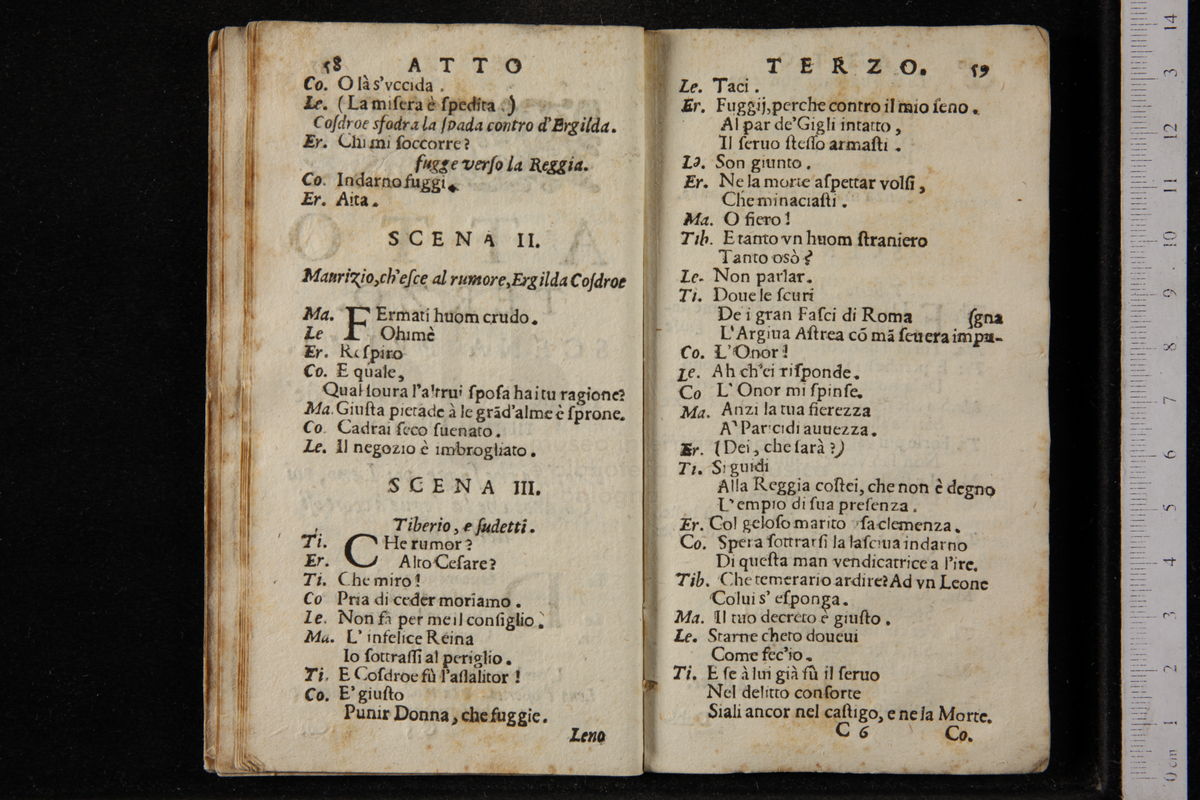 58 ATTO
Co. O là s'vccida.
Le. (La miſera è ſpedita.)
Coſdroe sfodra la ſpada contro d'Ergilda.
Er. Chi mi ſoccorre?
fugge verſo la Reggia.
Co. Indarno fuggi.
Er. Aita.
SCENA II.
Maurizio, ch'eſce al rumore, Ergilda Coſdroe
Ma. FErmati huom crudo.
Le Ohimè
Er. Reſpiro
Co. E quale,
Qual'ſoura l'altrui ſpoſa hai tu ragione?
Ma. Giuſta pietade à le grãd'alme è ſprone.
Co. Cadrai ſeco ſuenato.
Le. Il negozio è imbrogliato.
SCENA III.
Tiberio, e ſudetti.
Ti. CHe rumor?
Er. Alto Ceſare?
Ti. Che miro!
Co Pria di ceder moriamo.
Le. Non fà per me il conſiglio.
Ma. L' infelice Reina
Io ſottraſſi al periglio.
Ti. E Coſdroe fù l'aſſalitor!
Co. E' giuſto
Punir Donna, che fuggie.
Leno
TERZO. 59
Le. Taci.
Er. Fuggij, perche contro il mio ſeno.
Al par de'Gigli intatto,
Il ſeruo ſteſſo armaſti.
Le. Son giunto.
Er. Ne la morte aſpettar volſi,
Che minaciaſti.
Ma. O fiero!
Tib. E tanto vn huom ſtraniero
Tanto osò?
Le. Non parlar.
Ti. Doue le ſcuri
De i gran Faſci di Roma ſgna
L'Argiua Aſtrea cõ mã ſeuera impu-
Co. L'Onor!
Le. Ah ch'ei riſponde.
Co L' Onor mi ſpinſe.
Ma. Anzi la tua fierezza
A' Paricidi auuezza.
Er. (Dei, che ſarà?)
Ti. Si guidi
Alla Reggia coſtei, che non è degno
L'empio di ſua preſenza.
Er. Col geloſo marito vſa clemenza.
Co. Spera ſottrarſi la laſciua indarno
Di queſta man vendicatrice a l'ire.
Tib. Che temerario ardire? Ad vn Leone
Colui s' eſponga.
Ma. Il tuo decreto è giuſto.
Le. Starne cheto doueui
Come fec'io.
Ti. E ſe à lui già fù il ſeruo
Nel delitto conſorte
Siali ancor nel caſtigo, e ne la Morte.
C 6 Co.
0 cm 1 2 3 4 5 6 7 8 9 10 11 12 13 14